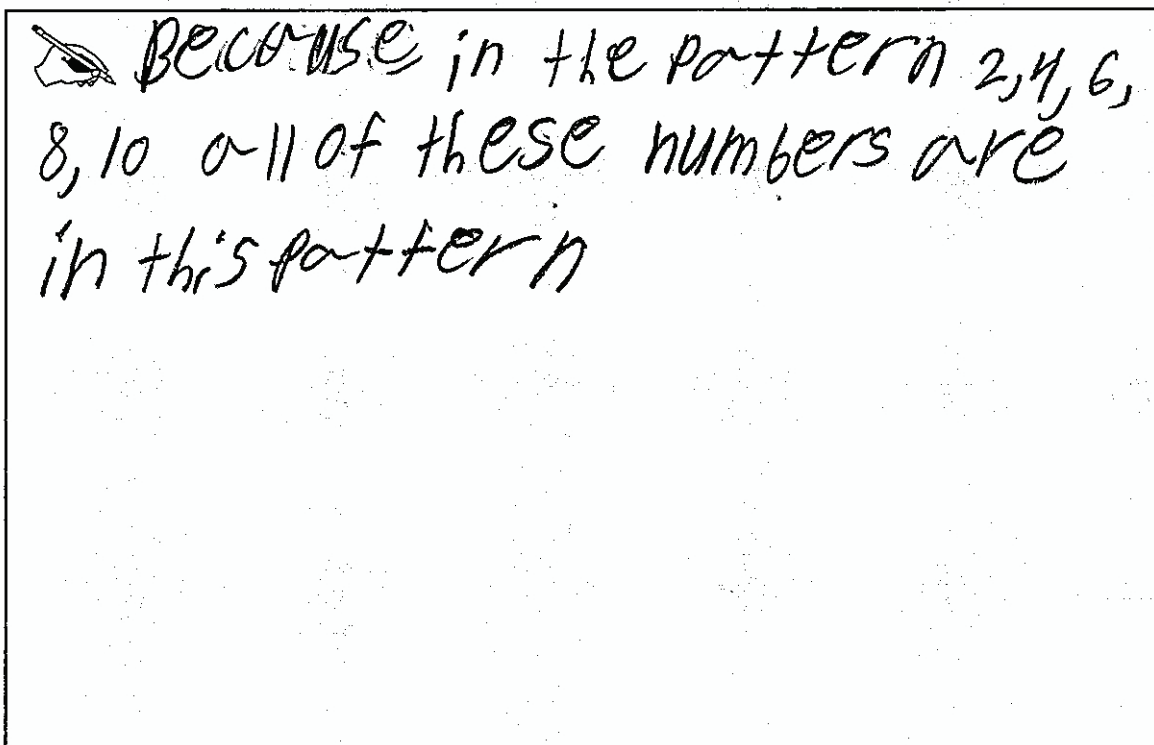 Because in the pattern 2,4,6,
8,10 all of these numbers are
in this pattern